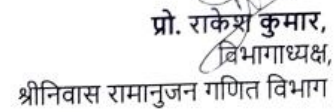 प्रो. राकेश कुमार,
विभागाध्यक्ष,
श्रीनिवास रामानुजन गणित विभाग